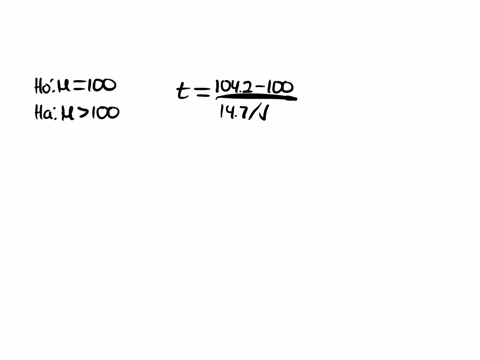 Ho: μ = 100
Ha: μ > 100
t = 104.2 - 100
14.7/√